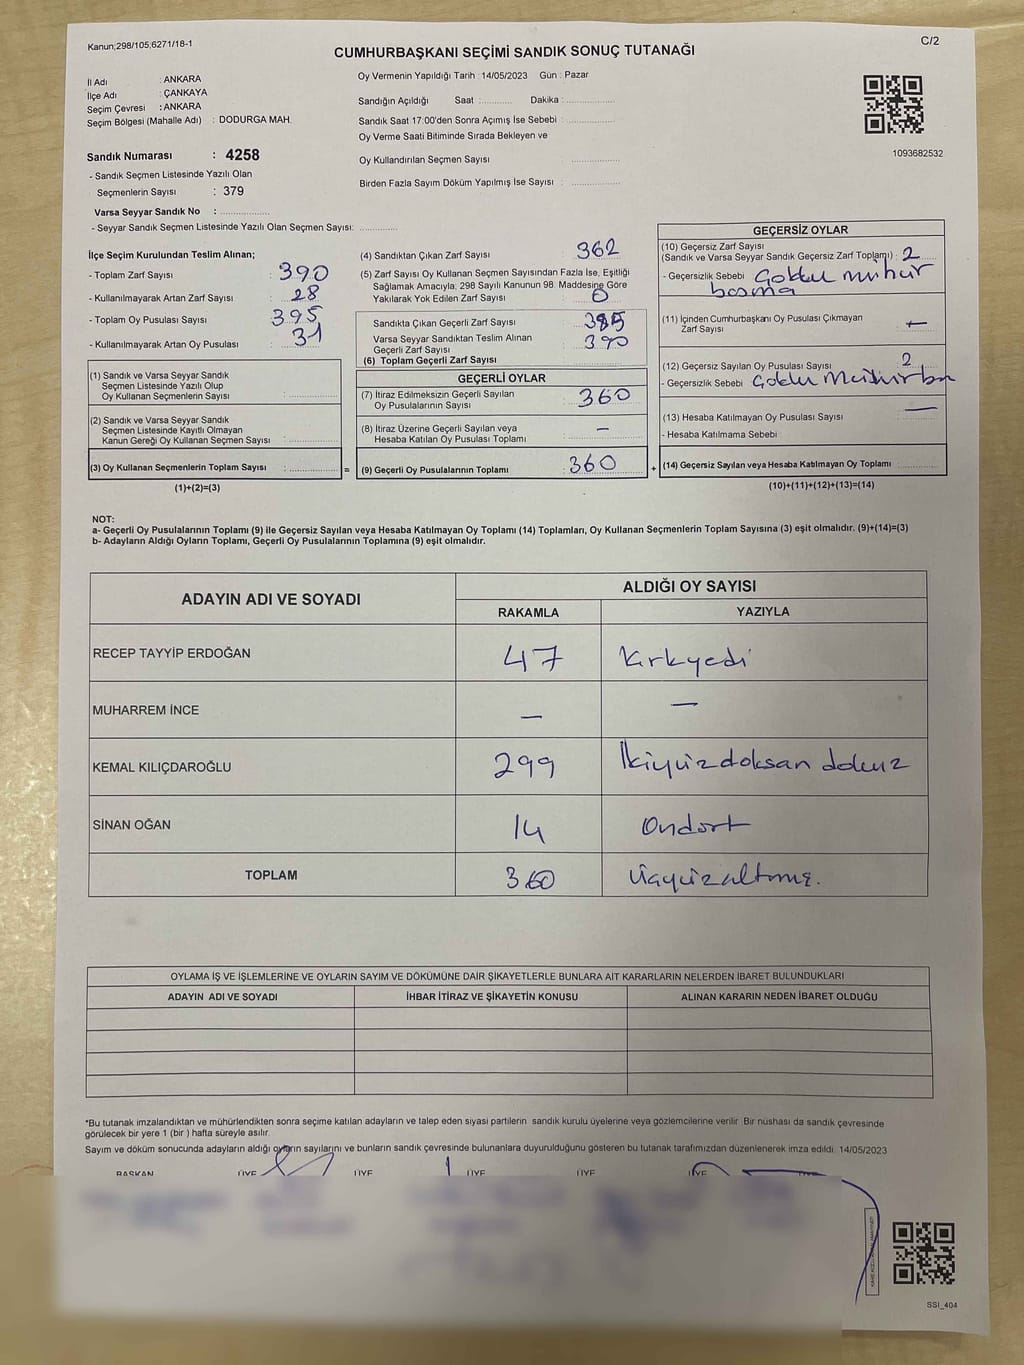 Kanun;298/105;6271/18-1
C/2
CUMHURBAŞKANI SEÇİMİ SANDIK SONUÇ TUTANAĞI
İl Adı : ANKARA
İlçe Adı : ÇANKAYA
Seçim Çevresi : ANKARA
Seçim Bölgesi (Mahalle Adı) : DODURGA MAH.
Oy Vermenin Yapıldığı Tarih : 14/05/2023 Gün : Pazar
Sandığın Açıldığı Saat :............ Dakika :..................
Sandık Saat 17:00'den Sonra Açımış İse Sebebi :..................
Oy Verme Saati Bitiminde Sırada Bekleyen ve
Oy Kullandırılan Seçmen Sayısı ..................
Birden Fazla Sayım Döküm Yapılmış İse Sayısı :..................
1093682532
Sandık Numarası : 4258
- Sandık Seçmen Listesinde Yazılı Olan
Seçmenlerin Sayısı : 379
Varsa Seyyar Sandık No :..................
- Seyyar Sandık Seçmen Listesinde Yazılı Olan Seçmen Sayısı: ..............
İlçe Seçim Kurulundan Teslim Alınan;
- Toplam Zarf Sayısı : 390
- Kullanılmayarak Artan Zarf Sayısı : 28
- Toplam Oy Pusulası Sayısı : 395
- Kullanılmayarak Artan Oy Pusulası : 31
(1) Sandık ve Varsa Seyyar Sandık
Seçmen Listesinde Yazılı Olup
Oy Kullanan Seçmenlerin Sayısı :..................
(2) Sandık ve Varsa Seyyar Sandık
Seçmen Listesinde Kayıtlı Olmayan
Kanun Gereği Oy Kullanan Seçmen Sayısı :..................
(3) Oy Kullanan Seçmenlerin Toplam Sayısı :.................. =
(1)+(2)=(3)
(4) Sandıktan Çıkan Zarf Sayısı 362
(5) Zarf Sayısı Oy Kullanan Seçmen Sayısından Fazla İse, Eşitliği
Sağlamak Amacıyla, 298 Sayılı Kanunun 98. Maddesine Göre
Yakılarak Yok Edilen Zarf Sayısı : 0
Sandıkta Çıkan Geçerli Zarf Sayısı : 385
Varsa Seyyar Sandıktan Teslim Alınan
Geçerli Zarf Sayısı : 390
(6) Toplam Geçerli Zarf Sayısı
GEÇERLİ OYLAR
(7) İtiraz Edilmeksizin Geçerli Sayılan
Oy Pusulalarının Sayısı 360
(8) İtiraz Üzerine Geçerli Sayılan veya
Hesaba Katılan Oy Pusulası Toplamı —
(9) Geçerli Oy Pusulalarının Toplamı : 360 +
GEÇERSİZ OYLAR
(10) Geçersiz Zarf Sayısı
(Sandık ve Varsa Seyyar Sandık Geçersiz Zarf Toplamı) : 2
- Geçersizlik Sebebi Çoklu mühür
basma
(11) İçinden Cumhurbaşkanı Oy Pusulası Çıkmayan
Zarf Sayısı —
(12) Geçersiz Sayılan Oy Pusulası Sayısı 2
- Geçersizlik Sebebi Çoklu
(13) Hesaba Katılmayan Oy Pusulası Sayısı —
- Hesaba Katılmama Sebebi
(14) Geçersiz Sayılan veya Hesaba Katılmayan Oy Toplamı ..............
(10)+(11)+(12)+(13)=(14)
NOT:
a- Geçerli Oy Pusulalarının Toplamı (9) ile Geçersiz Sayılan veya Hesaba Katılmayan Oy Toplamı (14) Toplamları, Oy Kullanan Seçmenlerin Toplam Sayısına (3) eşit olmalıdır. (9)+(14)=(3)
b- Adayların Aldığı Oyların Toplamı, Geçerli Oy Pusulalarının Toplamına (9) eşit olmalıdır.
ADAYIN ADI VE SOYADI
ALDIĞI OY SAYISI
RAKAMLA YAZIYLA
RECEP TAYYİP ERDOĞAN 47 Kırkyedi
MUHARREM İNCE — —
KEMAL KILIÇDAROĞLU 299 İkiyüzdoksan dokuz
SİNAN OĞAN 14 Ondört
TOPLAM 360 üçyüzaltmış.
OYLAMA İŞ VE İŞLEMLERİNE VE OYLARIN SAYIM VE DÖKÜMÜNE DAİR ŞİKAYETLERLE BUNLARA AİT KARARLARIN NELERDEN İBARET BULUNDUKLARI
ADAYIN ADI VE SOYADI İHBAR İTİRAZ VE ŞİKAYETİN KONUSU ALINAN KARARIN NEDEN İBARET OLDUĞU
*Bu tutanak imzalandıktan ve mühürlendikten sonra seçime katılan adayların ve talep eden siyasi partilerin sandık kurulu üyelerine veya gözlemcilerine verilir. Bir nüshası da sandık çevresinde
görülecek bir yere 1 (bir ) hafta süreyle asılır.
Sayım ve döküm sonucunda adayların aldığı oyların sayılarını ve bunların sandık çevresinde bulunanlara duyurulduğunu gösteren bu tutanak tarafımızdan düzenlenerek imza edildi. 14/05/2023
BAŞKAN ÜYE ÜYE ÜYE ÜYE ÜYE
SSI_404